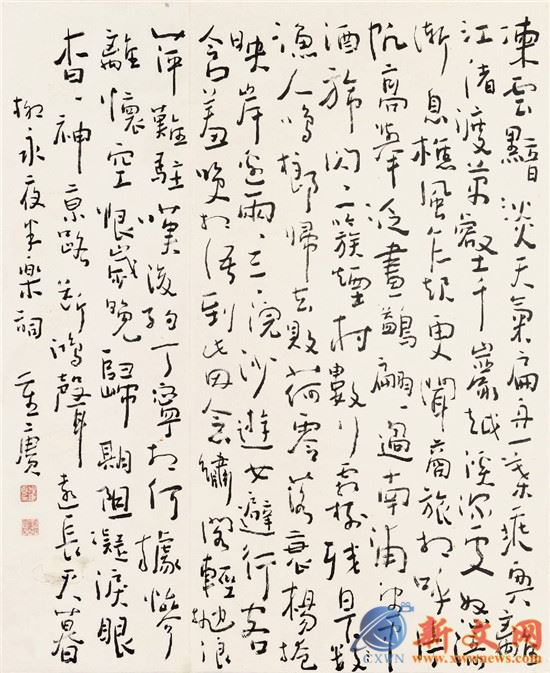 凍雲黯淡天氣扁舟一葉乘興離
江渚渡萬壑千巖越溪深處怒濤
漸息樵風乍起更聞商旅相呼片
帆高舉泛畫鷁翩〻過南浦望中
酒旆閃〻一簇煙村數行霜樹殘日下
漁人鳴榔歸去敗荷零落衰楊掩
映岸邊兩〻三〻浣沙遊女避行客
含羞笑相語到此因念繡閣輕拋浪
萍難駐嘆後約丁寧何據慘
離懷空恨歲晚歸期阻凝淚眼
杳〻神京路斷鴻聲遠長天暮
柳永夜半樂詞
新文网
CXWN www.xwwnews.com